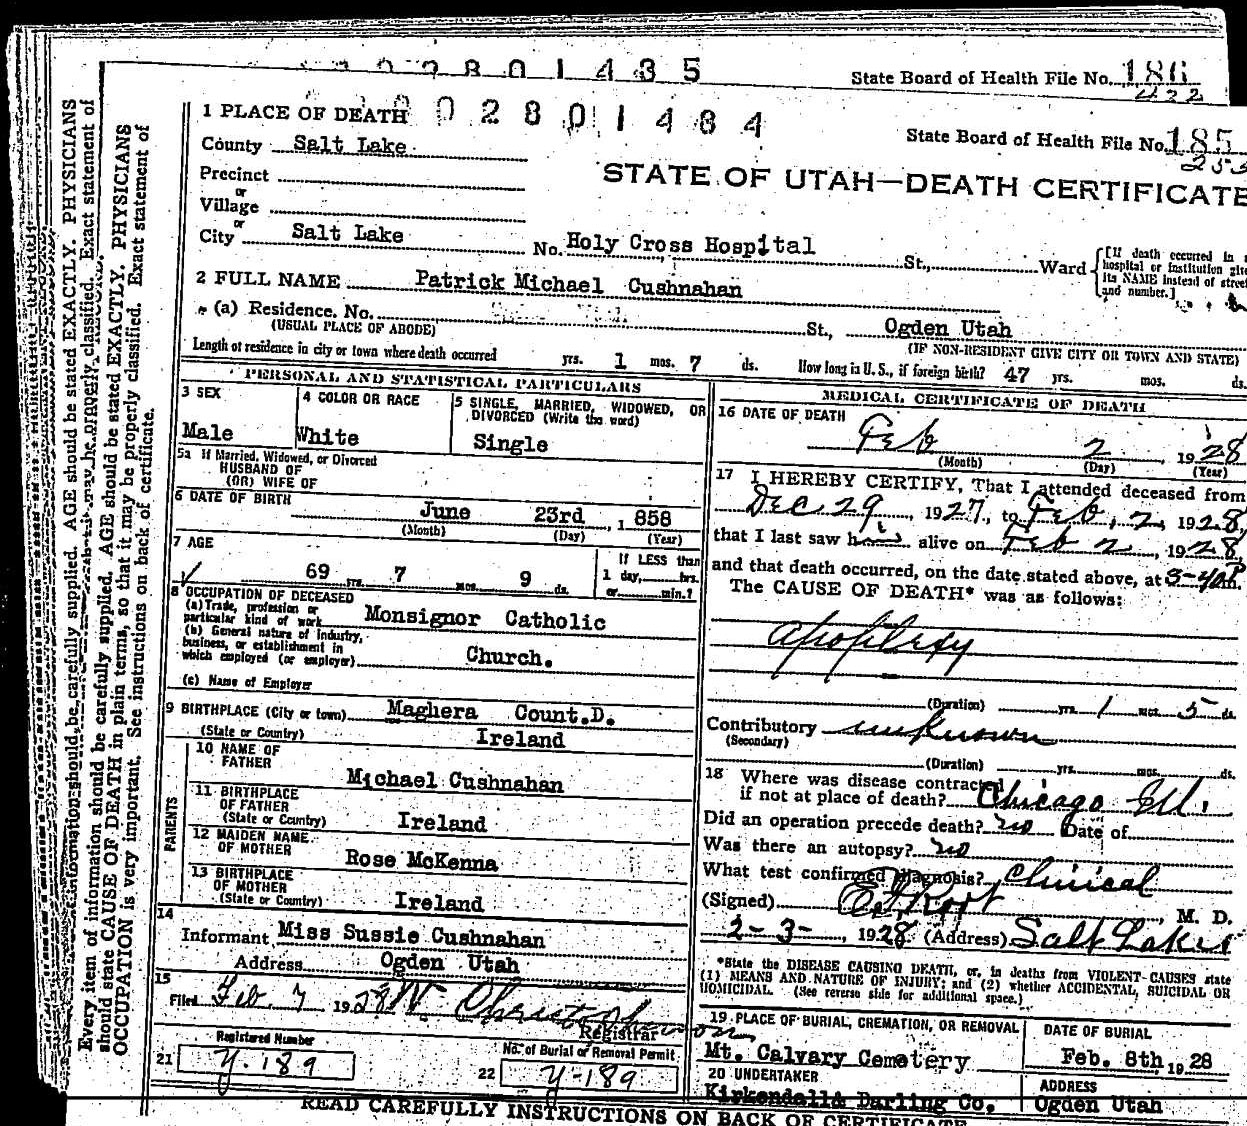 2801435
State Board of Health File No. 186
422
02801434
State Board of Health File No. 185
253
STATE OF UTAH—DEATH CERTIFICATE
1 PLACE OF DEATH
County Salt Lake
Precinct
or
Village
or
City Salt Lake No. Holy Cross Hospital St., Ward
[If death occurred in a
hospital or institution give
its NAME instead of street
and number.]
2 FULL NAME Patrick Michael Cushnahan
(a) Residence. No. St., Ogden Utah
(USUAL PLACE OF ABODE) (IF NON-RESIDENT GIVE CITY OR TOWN AND STATE)
Length of residence in city or town where death occurred yrs. 1 mos. 7 ds. How long in U. S., if foreign birth? 47 yrs. mos. ds.
PERSONAL AND STATISTICAL PARTICULARS
3 SEX
Male
4 COLOR OR RACE
White
5 SINGLE, MARRIED, WIDOWED, OR
DIVORCED (Write the word)
Single
5a If Married, Widowed, or Divorced
HUSBAND OF
(OR) WIFE OF
6 DATE OF BIRTH
June 23rd, 1858
(Month) (Day) (Year)
7 AGE
69 yrs. 7 mos. 9 ds.
If LESS than
1 day, hrs.
or min.?
8 OCCUPATION OF DECEASED
(a) Trade, profession or
particular kind of work Monsignor Catholic
(b) General nature of industry,
business, or establishment in
which employed (or employer) Church.
(c) Name of Employer
9 BIRTHPLACE (City or town) Maghera Count.D.
(State or Country) Ireland
PARENTS
10 NAME OF
FATHER
Michael Cushnahan
11 BIRTHPLACE
OF FATHER
(State or Country) Ireland
12 MAIDEN NAME
OF MOTHER
Rose McKenna
13 BIRTHPLACE
OF MOTHER
(State or Country) Ireland
14
Informant Miss Sussie Cushnahan
Address Ogden Utah
15
Filed Feb. 7 1928 W. Christopherson
Registrar
Registered Number
21 y. 189
No. of Burial or Removal Permit
22 y-189
MEDICAL CERTIFICATE OF DEATH
16 DATE OF DEATH
Feb 2, 1928
(Month) (Day) (Year)
17 I HEREBY CERTIFY, That I attended deceased from
Dec. 29, 1927, to Feb, 2, 1928,
that I last saw him alive on Feb 2, 1928,
and that death occurred, on the date stated above, at 3-40P m.
The CAUSE OF DEATH* was as follows:
apoplexy
(Duration) yrs. 1 mos. 5 ds.
Contributory unknown
(Secondary)
(Duration) yrs. mos. ds.
18 Where was disease contracted
if not at place of death? Chicago Ill.
Did an operation precede death? no Date of
Was there an autopsy? no
What test confirmed diagnosis? Clinical
(Signed) M. D.
2-3-, 1928 (Address) Salt Lake
*State the DISEASE CAUSING DEATH, or, in deaths from VIOLENT CAUSES state
(1) MEANS AND NATURE OF INJURY; and (2) whether ACCIDENTAL, SUICIDAL OR
HOMICIDAL. (See reverse side for additional space.)
19 PLACE OF BURIAL, CREMATION, OR REMOVAL
Mt. Calvary Cemetery
DATE OF BURIAL
Feb. 8th, 1928
20 UNDERTAKER
Kirkendall& Darling Co.
ADDRESS
Ogden Utah
READ CAREFULLY INSTRUCTIONS ON BACK OF CERTIFICATE
Every item of information should be carefully supplied. AGE should be stated EXACTLY. PHYSICIANS
should state CAUSE OF DEATH in plain terms, so that it may be properly classified. Exact statement of
OCCUPATION is very important. See instructions on back of certificate.